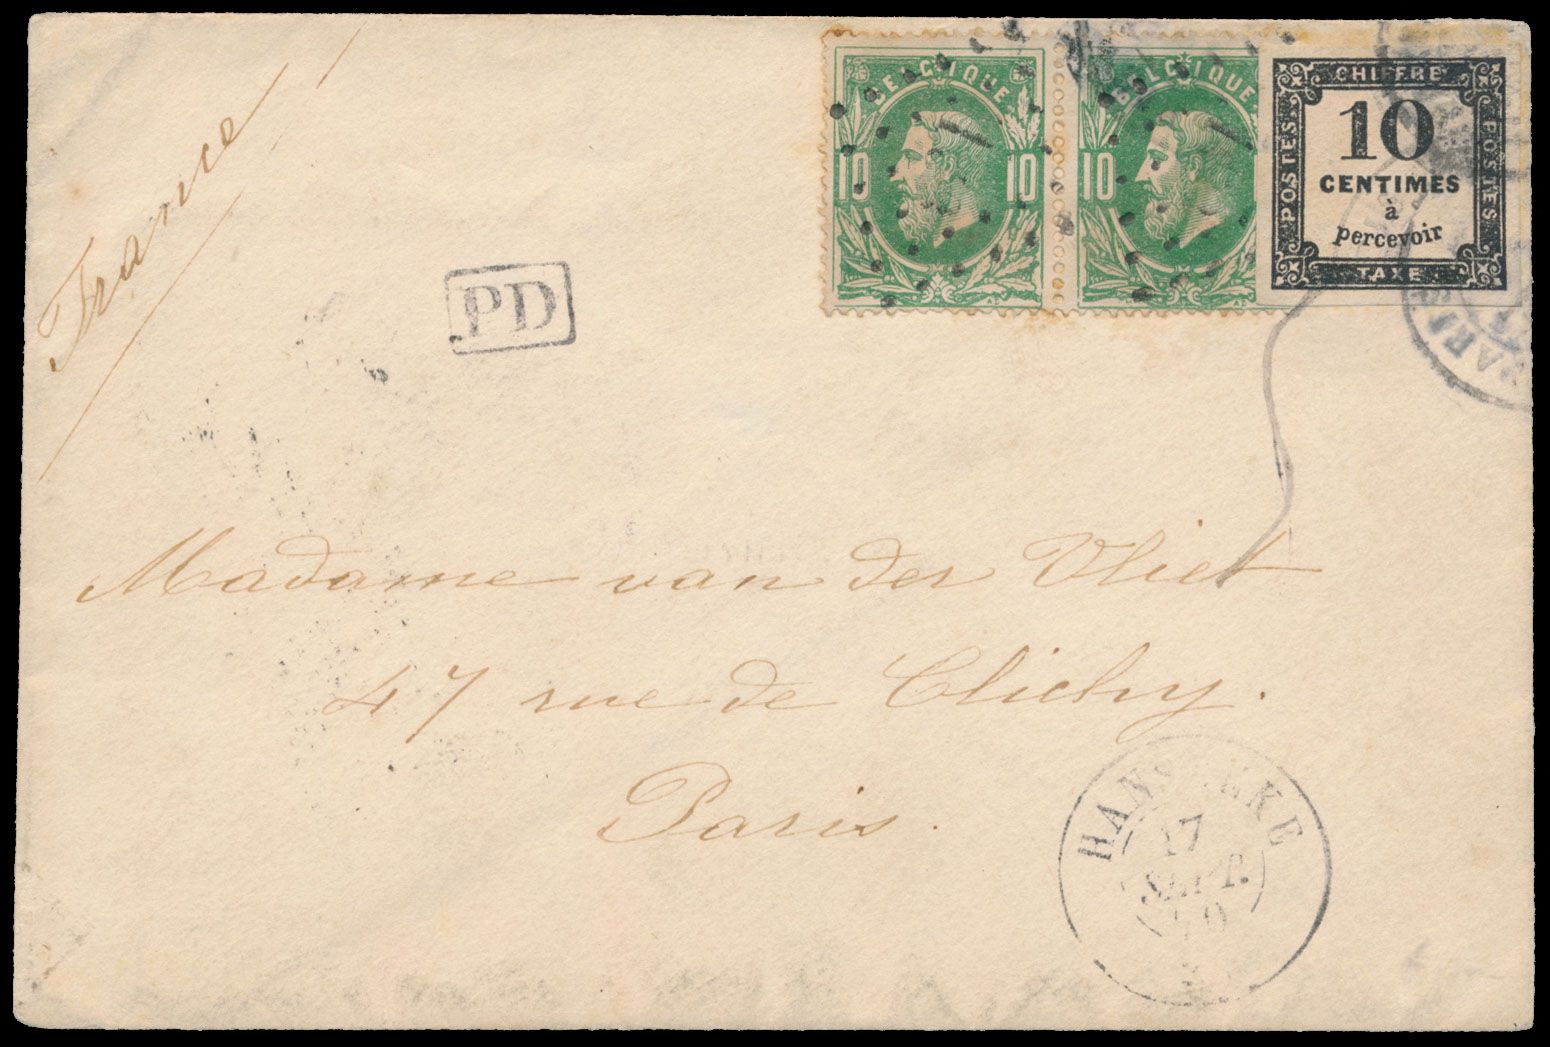 France
BELGIQUE
10 10
BELGIQUE
10
CHIFFRE
POSTES
10
CENTIMES
à
percevoir
POSTES
TAXE
PD
PARIS
Madame van der Vliet
47 rue de Clichy.
Paris.
HANSBEKE
17
SEPT.